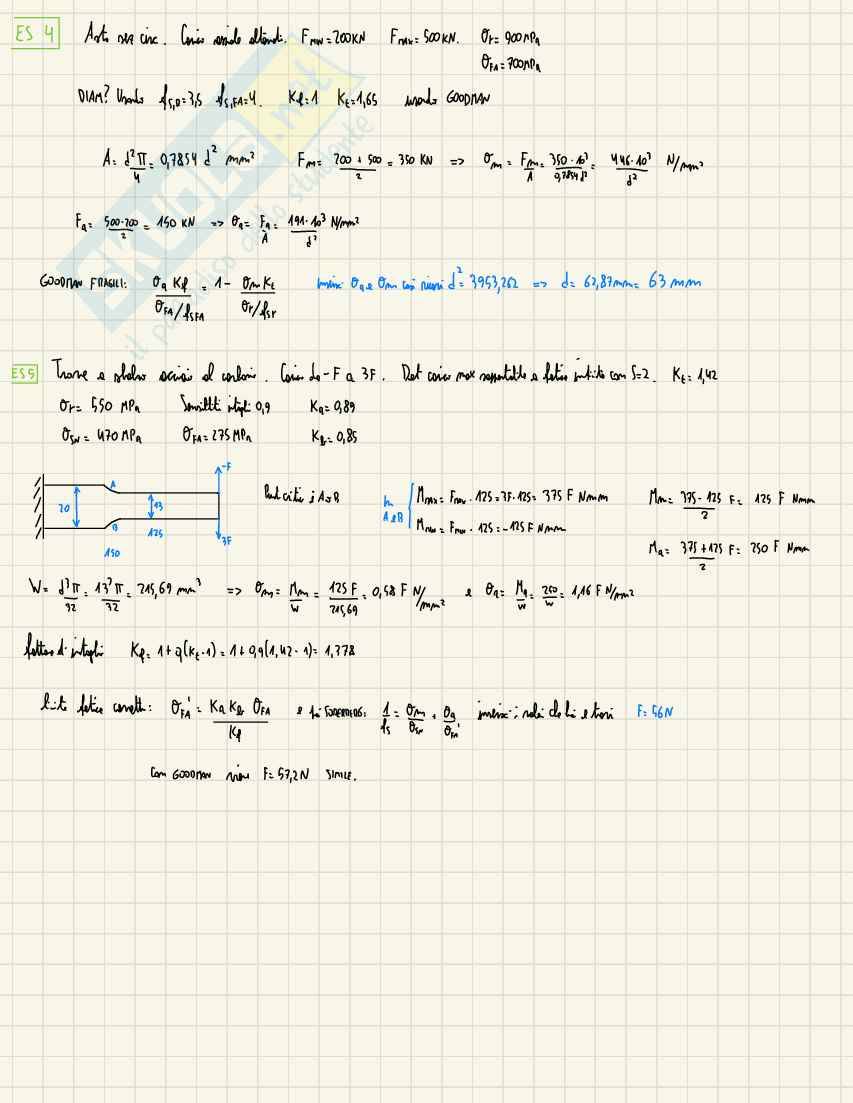 ES 4 Asta sez circ. Carico assiale alternato. Fmin = 200KN Fmax = 500KN. σr = 900MPa
σFA = 700MPa
DIAM? Usando fs,r = 3,5 fs,FA = 4. Kf = 1 Kt = 1,65 usando GOODMAN
A = d²π/4 = 0,7854 d² mm² Fm = 200 + 500/2 = 350 KN => σm = Fm/A = 350·10³/0,7854d² = 446·10³/d² N/mm²
Fa = 500-200/2 = 150 KN => σa = Fa/A = 191·10³/d² N/mm²
GOODMAN FRAGILI: σa Kf/σFA/fsFA = 1 - σm Kt/σr/fsr σa e σm così d² = 3953,262 => d = 62,87mm = 63 mm
ES 5 Trave a sbalzo acciaio al carbonio. Carico da -F a 3F. Det carico max sopportabile a fatica infinita con S=2. Kt = 1,42
σr = 550 MPa Sensibilità intagli 0,9 Ka = 0,89
σsn = 470 MPa σFA = 275 MPa Kb = 0,85
A -F
20 13
B 3F
125
150
Punti critici: A o B
In A e B
Mmax = Fmax · 125 = 3F · 125 = 375 F Nmm
Mmin = Fmin · 125 = -125 F Nmm
Mm = 375 - 125/2 F = 125 F Nmm
Ma = 375 + 125/2 F = 250 F Nmm
W = d³π/32 = 13³π/32 = 215,69 mm³ => σm = Mm/W = 125 F/215,69 = 0,58 F N/mm² e σa = Ma/W = 250/W = 1,16 F N/mm²
fattore di intaglio Kf = 1 + q(Kt - 1) = 1 + 0,9(1,42 - 1) = 1,378
limite fatica corretto: σFA' = Ka Kb σFA/Kf e SODERBERG: 1/fs = σm/σsn + σa/σFA' e trovi F = 56N
Con GOODMAN viene F = 57,2N SIMILE.
SKUOLA.net
il paradiso dello studente